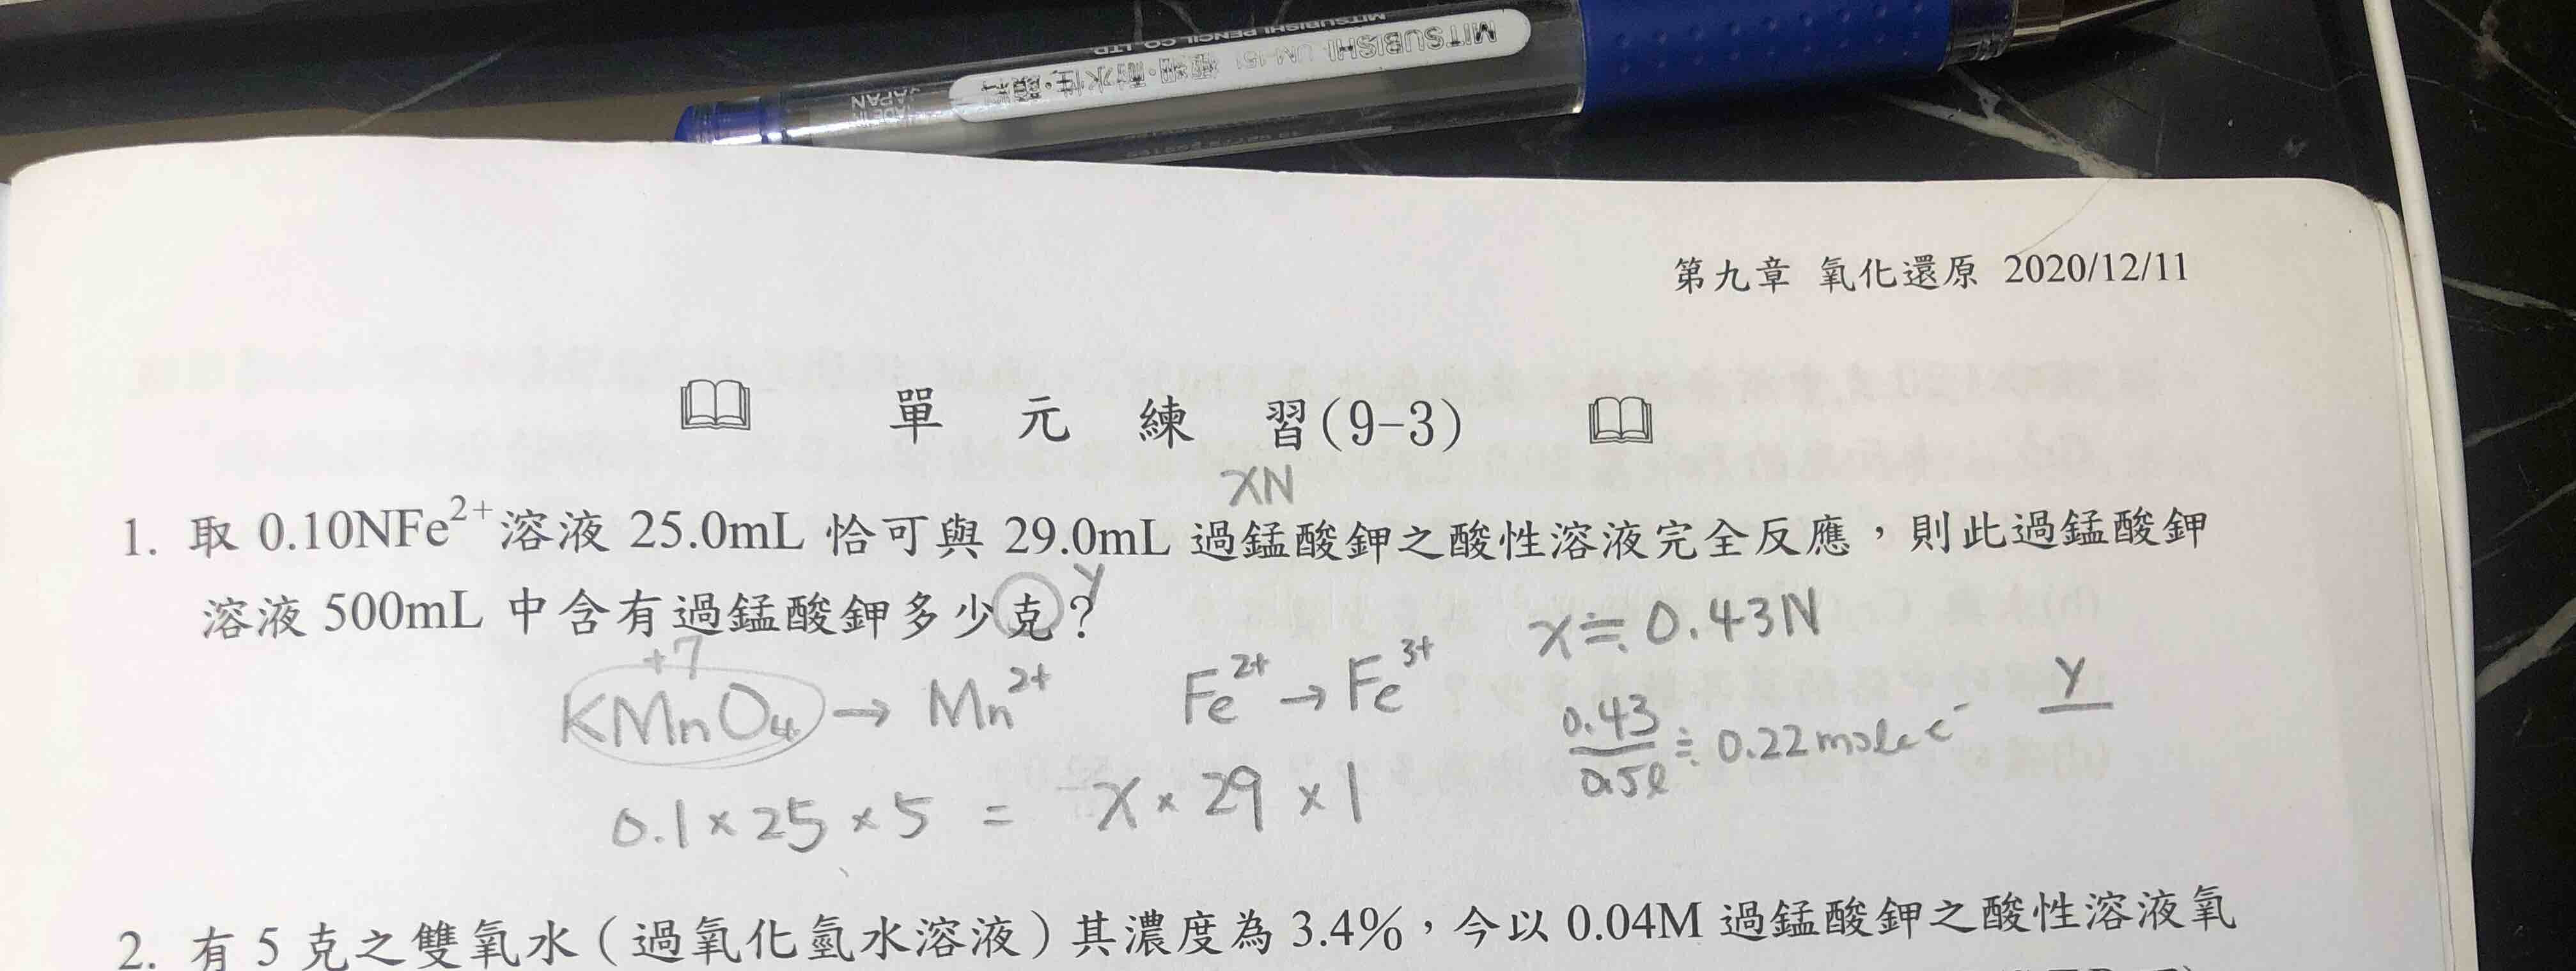 MITSUBISHI PENCIL CO. LTD
MITSUBISHI UM-151 極細・耐水性・顔料
MADE IN JAPAN
第九章 氧化還原 2020/12/11
單 元 練 習(9-3)
xN
1. 取 0.10NFe²⁺溶液 25.0mL 恰可與 29.0mL 過錳酸鉀之酸性溶液完全反應，則此過錳酸鉀
溶液 500mL 中含有過錳酸鉀多少克？ y
x≒0.43N
+7
KMnO₄ → Mn²⁺ Fe²⁺ → Fe³⁺
0.43/0.5ℓ ≒ 0.22 mole e⁻
y
0.1 × 25 × 5 = x × 29 × 1
2. 有 5 克之雙氧水（過氧化氫水溶液）其濃度為 3.4%，今以 0.04M 過錳酸鉀之酸性溶液氧